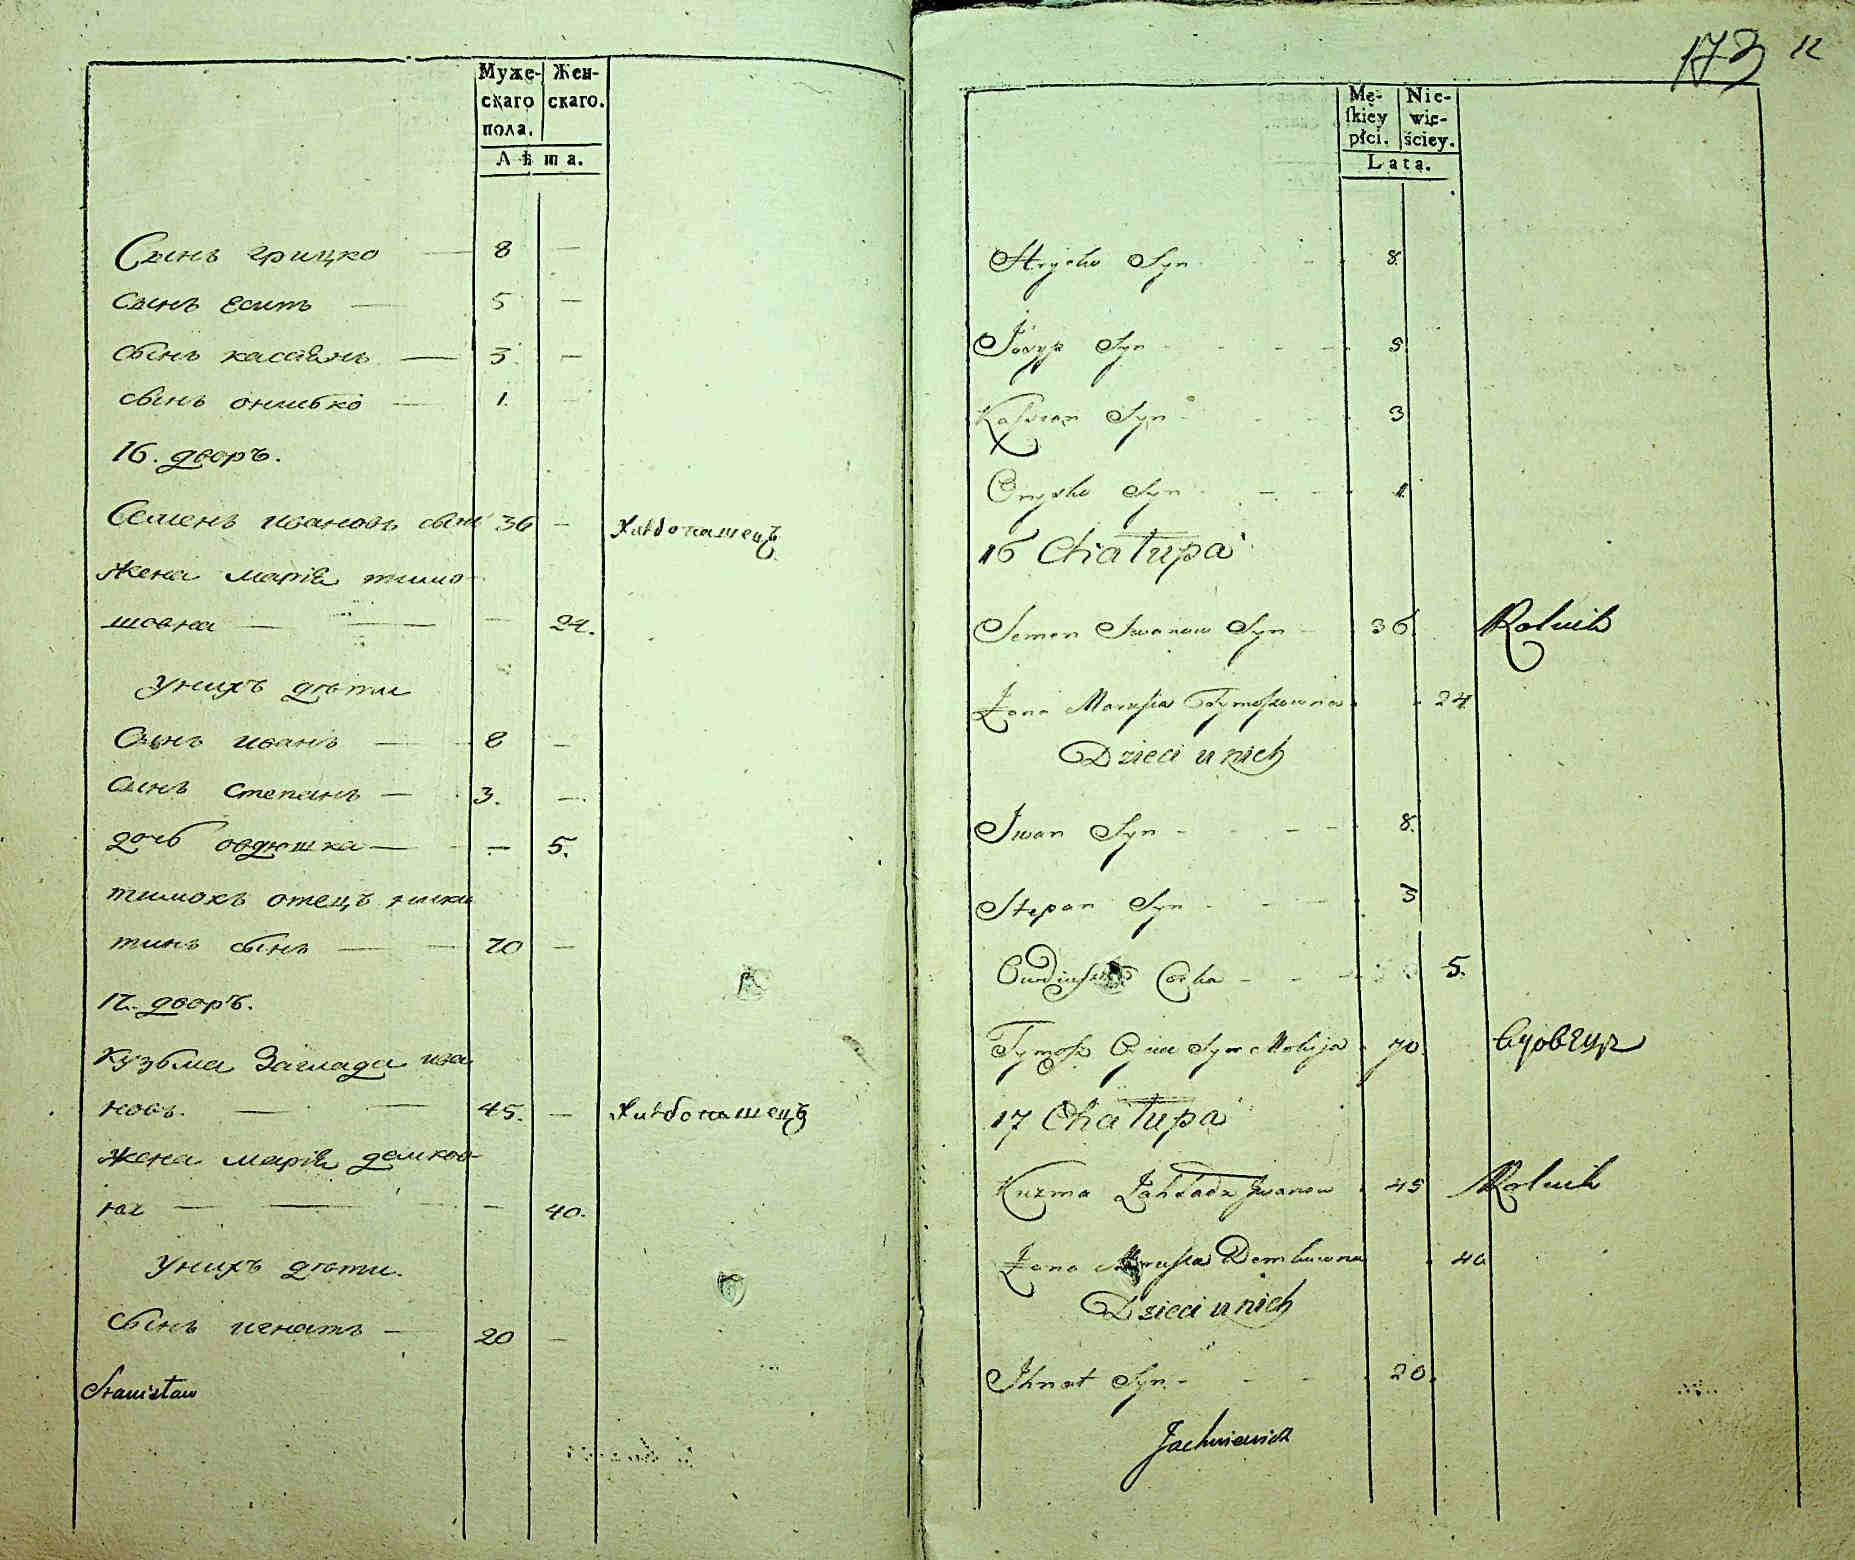 Муже-
скаго
пола.
Жен-
скаго.
Лѣта.
Сынъ грицко 8 —
сынъ есипъ — 5 —
сынъ касіянъ — 3. —
сынъ онисько — 1. —
16. дворъ.
Семенъ ивановъ сынъ 36 — Хлѣбопашецъ
жена марія тимо-
шовна — — 24.
унихъ дѣти
Сынъ иванъ — 8 —
сынъ степанъ — 3. —
дочь овдюшка — — 5.
тимохъ отецъ
тинъ сынъ — 70 —
17. дворъ.
кузьма Заглада ива
новъ. — 45. — Хлѣбопашецъ
жена марія демков-
на — — 40.
унихъ дѣти.
сынъ игнатъ — 20 —
Stanisław
173 12
Mę-
skiey
płci.
Nie-
wie-
ściey.
Lata.
Hrycko Syn 8.
Josyp Syn 5
Kassian Syn 3
Onysko Syn 1
16 Chałupa
Semen Iwanow Syn 36 Rolnik
Żona Marusia Tymoszowna 24
Dzieci u nich
Iwan Syn 8.
Stepan Syn 3
Corka 5.
Tymosz Oyciec Syn 70 Вдовецъ
17 Chałupa
Kuzma Zahłada Iwanow 45 Rolnik
Żona Marusia Demkowna 40
Dzieci u nich
Ihnat Syn 20.
Jachniewicz